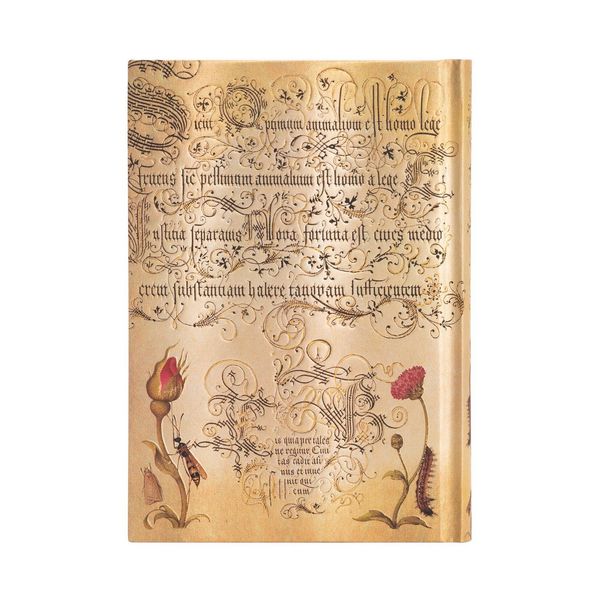 Sicut Optimum animalium est homo lege
fruens sic pessimum animalium est homo a lege Et
Iustitia separatus Bona fortuna est cives medio
crem substantiam habere tanquam sufficientem
is quia per tales
ne regitur Civi
tas cadit ali
nus et inve
nit qui
cum